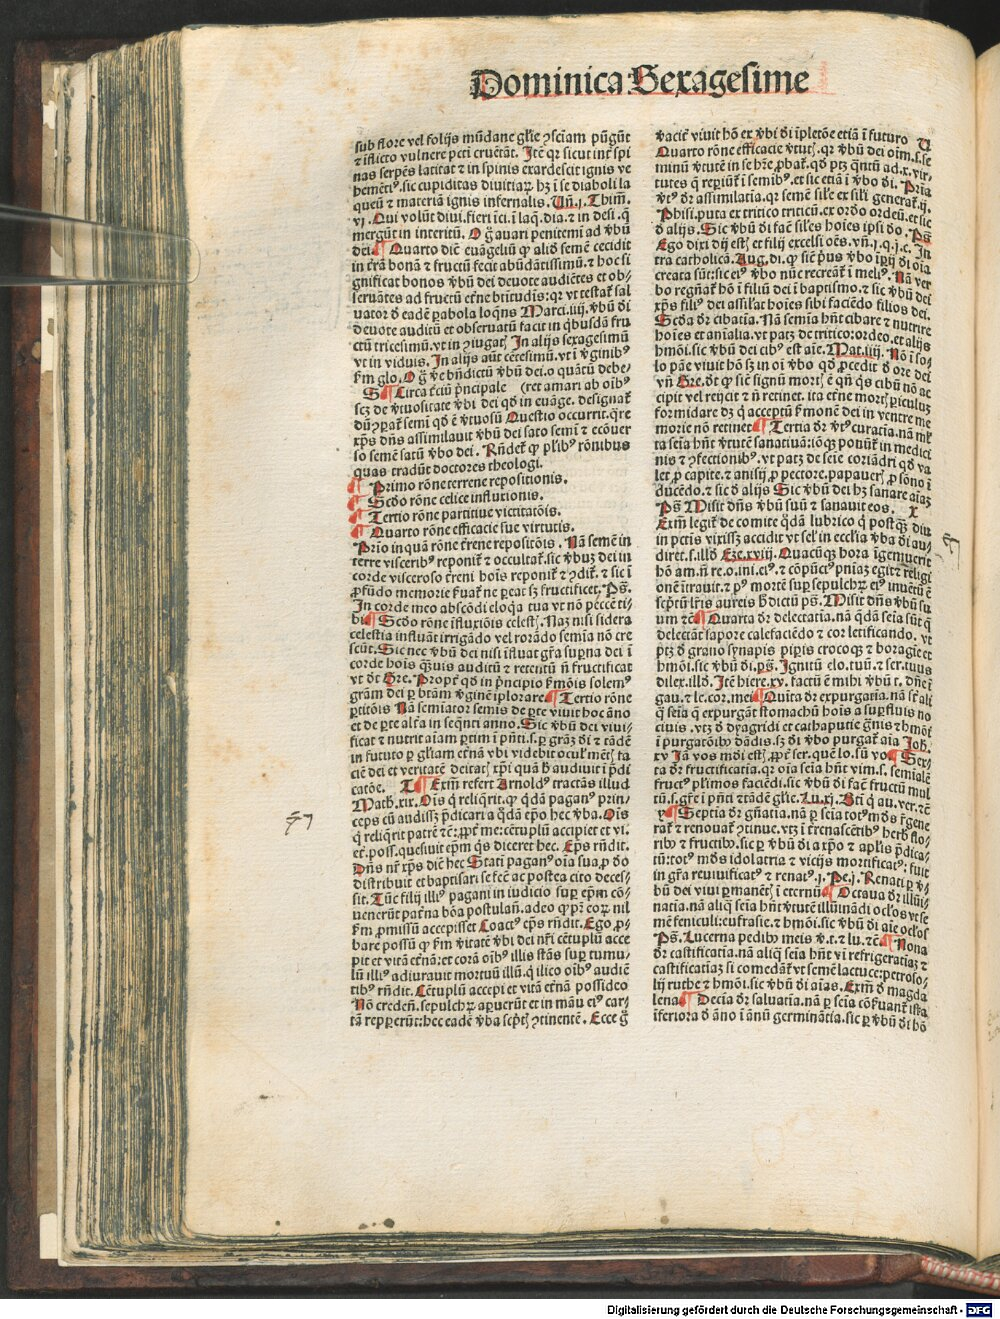 Dominica Sexagesime
sub flore vel folijs mūdane gl̄ie ꝯsciam pūgūt
⁊ iflicto vulnere pcti cruētāt. Itē qꝛ sicut int̄ spi
nas serpēs latitat ⁊ in spinis exardescit ignis ve
hemētiꝰ. sic cupiditas diuitiaꝝ hꝫ i se diaboli la
queū ⁊ materiā ignis infernalis. Vn̄.j. Thim̄.
vj. Qui volūt diui. fieri īci. i laq̄. dia. ⁊ in desi. q̄
mergūt in interitū. O g̊ auari penitemi ad vbū
dei. Quarto dic̄ euāgeliū ꝙ aliđ semē cecidit
in t̄rā bonā ⁊ fructū fecit abūdātissimū. ⁊ hoc si
gnificat bonos vbū dei deuote audiētes et ob/
seruātes ad fructū et̄ne btitudīs: qꝛ vt testat̄ sal
uator đ eadē ꝑabola loq̄ns Marci.iiij. vbū đi
deuote auditū et obseruatū facit in q̇busdā fru
ctū tricesimū. vt in ꝯiugatꝭ In alijs sexagesimū
vt in viduis. In alijs aūt cētesimū. vt i v̄ginibꝰ
ẜm glo. O g̊ ve bn̄dictū vbū dei. o quātū debe/
S Circa t̄ciū pͥncipale (ret amari ab oībꝰ
scꝫ de v̄tuositate vbi dei qđ in euāge. designat̄
dū ꝯꝑat̄ semi qđ ē v̄tuosū Questio occurrit. q̄re
xp̄s dn̄s assimilauit vbū dei sato semī ⁊ ecōuer
so semē satū vbo dei. Rn̄det̄ ꝙ pl̄ibꝰ rōnibus
quas tradūt doctores theologi.
Primo rōne terrene repositionis.
Scđo rōne celice influxionis.
Tertio rōne partitiue victitatōis.
Quarto rōne efficacie sue virtutis.
Prīo inquā rōne t̄rene repositōis. Nā semē in
terre visceribꝰ reponit̄ ⁊ occultat̄. sic vbuꝫ dei in
corde visceroso t̄reni hoīs reponit̄ ⁊ ꝯdit̄. ⁊ sic i
ꝓfūdo memorie ẜuat̄ ne ꝑeat sꝫ fructificet. Pꝰ.
In corde meo abscōdi eloq̄a tua vt nō peccē ti/
bi Scđo rōne ifluxiōis celestꝭ. Naꝫ nisi sidera
celestia influāt irrigādo vel rorādo semīa nō cre
scūt. Sic nec vbū dei nisi ifluat gr̄a suꝑna dei i
corde hoīs q̄ᷓuis auditū ⁊ retentū n̄ fructificat
vt dt̄ Gre. Propt̄ qđ in pͥncipio ẜmōis solemꝰ
grām dei ꝑ btām v̄ginē iplorare Tertio rōne
ꝑtitōis Nā semiator semīs de ꝑte viuit hoc āno
et de ꝑte alt̄a in seq̄nti anno. Sic vbū dei viui/
ficat ⁊ nutrit aīam ꝑtim i pn̄ti. s. ꝑ grāꝫ đi ⁊ tādē
in futuro ꝑ gl̄iam et̄nā vbi videbit oculꝭ mētꝭ fa
ciē dei et veritatē deitatꝭ xp̄i quā h̊ audiuit i pͥdi
catōe. T Exm̄ refert Arnoldꝰ tractās illud
Math.xix. Oīs q̇ reliq̇rit. ꝙ q̇dā paganꝰ prin/
ceps cū audissꝫ pͥdicari a q̇dā ep̄o hec v̄ba. Oīs
q̇ reliq̇rit patrē ⁊ē: ꝓpt̄ me: cētuplū accipiet et vi.
et̄. poss. quesiuit ep̄m q̇s diceret hec. Ep̄s rn̄dit.
Dn̄s nr̄ xp̄s dic̄ hec Stati paganꝰ oīa sua. ꝓ đo
distribuit et baptisari se fec̄ ac postea cito deces/
sit. Tūc filij illiꝰ pagani in iudicio suꝑ ep̄m cō/
uenerūt pat̄na bōa postulan̄. adeo ꝙ pr̄ eoꝝ nil
ẜm ꝓmissū accepisset Coactꝰ ep̄s rn̄dit. Ego ꝓ/
bare possū ꝙ ẜm v̄itatē vbi dei nr̄i cētuplū acce
pit et vitā et̄nā: et corā oībꝰ illis stās suꝑ tumu/
lū illiꝰ adiurauit mortuū illū. q̇ ilico oībꝰ audiē
tibꝰ rn̄dit. Cētuplū accepi et vitā et̄nā possideo
Nō creden̄. sepulchꝝ aꝑuerūt et in māu eiꝰ car/
tā reꝑerūt: hec eadē v̄ba sc̄ptꝭ ꝯtinentē. Ecce g̊
vacit̄ viuit hō ex v̄bi đi ipletōe etiā i futuro V
Quarto rōne efficacie v̄tutꝭ. qꝛ vbū dei oīm. s. se
minū v̄tutē in se hr̄e ꝓbat̄. qđ ptꝫ q̄ntū ad.x. vir/
tutes q̄ reꝑiūt̄ i semībꝰ. et sic etiā i vbo đi. Prīa
v̄tꝰ dr̄ assimilatīa. qꝛ semē sil̄e ex sil̄i generat̄.ij.
Phisi. puta ex tritico triticū. ex ordo ordeū. et sic
đ alijs. Sic vbū đi fac̄ sil̄es hoīes ipsi đo. Pꝰ
Ego dixi dij estꝭ et filij excelsi oēs. vn̄.j. q̄.j. c. In
tra catholicā. Aug. di. ꝙ siē pͥus vbo ipͥij đi oīa
creata sūt: sic eiꝰ vbo nūc recreat̄ i meliꝰ. Nā ver
bo regn̄at̄ hō i filiū dei i baptismo. ⁊ sic vbū dei
xp̄s filiꝰ dei assil̄at hoīes sibi faciēdo filios dei.
Scđa dr̄ cibatīa. Nā semīa hn̄t cibare ⁊ nutrire
hoīes et aīalia. vt patꝫ de tritico: ordeo. et alijs
hmōi. sic vbū dei cibꝰ est aīe. Mat.iiij. Nō i so/
lo pāe viuit hō sꝫ in oī vbo qđ ꝓcedit đ ore dei
vn̄ Gre. dt̄ ꝙ siē signū mortꝭ ē qn̄ q̇s cibū nō ac
cipit vel reijcit ⁊ n̄ retinet. ita et̄ne mortꝭ ꝑiculuꝫ
formidare dꝫ q̇ acceptū ẜmonē dei in ventre me
morie nō retinet Tertia dr̄ v̄tꝰ curatīa. nā ml̄
ta seīa hn̄t v̄tutē sanatiuā: ioͤꝫ ponūt̄ in medici
nis ⁊ ꝯfectionibꝰ. vt patꝫ de seīe coriādri qđ va
let ꝓ capite. ⁊ anisij ꝓ pectore. papauerꝭ ꝓ sōno i
ducēdo. ⁊ sic đ alijs Sic vbū dei hꝫ sanare aīas
Pꝰ Misit dn̄s vbū suū ⁊ sanauit eos. X
Exm̄ legit̄ de comite q̇dā lubrico q̇ postq̄ᷓ diu
in pctis vixissꝫ accidit vt sel̄ in eccl̄ia v̄ba đi au/
diret. s. illđ Eze.xviij. Quacūqꝫ hora igemuerit
hō am. n̄ re. o. ini. eiꝰ. ⁊ cōpūctꝰ pn̄iaꝫ egit ⁊ religi
onē itrauit. ⁊ pꝰ mortē suꝑ sepulchꝝ eiꝰ inuētū ē
sc̄ptū lr̄is aureis h̊ dictū pꝰ. Misit dn̄s vbū su
um ⁊ē Quarta dr̄ delectatīa. nā q̇dā seīa sūt q̄
delectāt sapore calefaciēdo ⁊ cor letificando. vt
ptꝫ đ grano synapis piꝑis crocoqꝫ ⁊ boragīe et
hmōi. sic vbū đi. pꝰ. Ignitū elo. tuū. ⁊ ser. tuus
dilex. illđ. Itē hiere.xv. factū ē mihi v̄bū t. dn̄e i
gau. ⁊ le. cor. mei Quīta dr̄ expurgatīa. nā st̄ ali
q̄ seīa q̄ expurgāt stomachū hoīs a suꝑfluis no
ciuis. vtꝫ đ dyagridi et cathaputie g̊nis ⁊ hmōi
i purgatōibꝫ dādis. sꝫ đi vbo purgat̄ aīa Joh.
xv Iā vos mōi estꝭ ꝓpt̄ ser. quē lo. sū vo Sex/
ta dr̄ fructificatīa. qꝛ oīa seīa hn̄t vim. s. semīalē
fructꝰ pl̄imos faciēdi. sic vbū đi fac̄ fructū mul
tū. s. gr̄e i pn̄ti ⁊ tādē gl̄ie. Lu.xj. Bti q̇ au. ver. ⁊ē
Y Septīa dr̄ gn̄atīa. nā ꝑ seīa totꝰ mōs t̄gene
rat̄ ⁊ renouat̄ ꝯtinue. vtꝫ i t̄renascētibꝫ herbꝭ flo/
ribꝫ ⁊ fructibꝫ. sic ꝑ vbū đi a xp̄o ⁊ aplīs pͥdica/
tū: totꝰ mōs idolatria ⁊ vicijs mortificatꝰ. fuit
in gr̄a reuiuificatꝰ ⁊ renatꝰ.j. Pe.j. Renati ꝑ v̄
bū dei viui ꝑmanētꝭ i et̄nū Octaua dr̄ illūi/
natīa. nā aliq̄ seīa hn̄t v̄tutē illūīnādi oclōs vt se
mē feniculi: eufrasie. ⁊ hmōi. sic vbū đi aīe oclōs
Pꝰ. Lucerna pedibꝫ meis v̄. t. ⁊ lu. ⁊ē Nona
dr̄ castificatīa. nā aliq̄ seīa hn̄t vī refrigeratiaꝫ ⁊
castificatiaꝫ si comedāt̄ vt semē lactuce: petroso/
lij ruthe ⁊ hmōi. sic vbū đi aīas. Exm̄ đ magda
lena Decīa dr̄ saluatīa. nā ꝑ seīa cōẜuant̄ ista
iferiora đ āno i ānū germinātia. sic ꝑ vbū đi hō
Digitalisierung gefördert durch die Deutsche Forschungsgemeinschaft - DFG